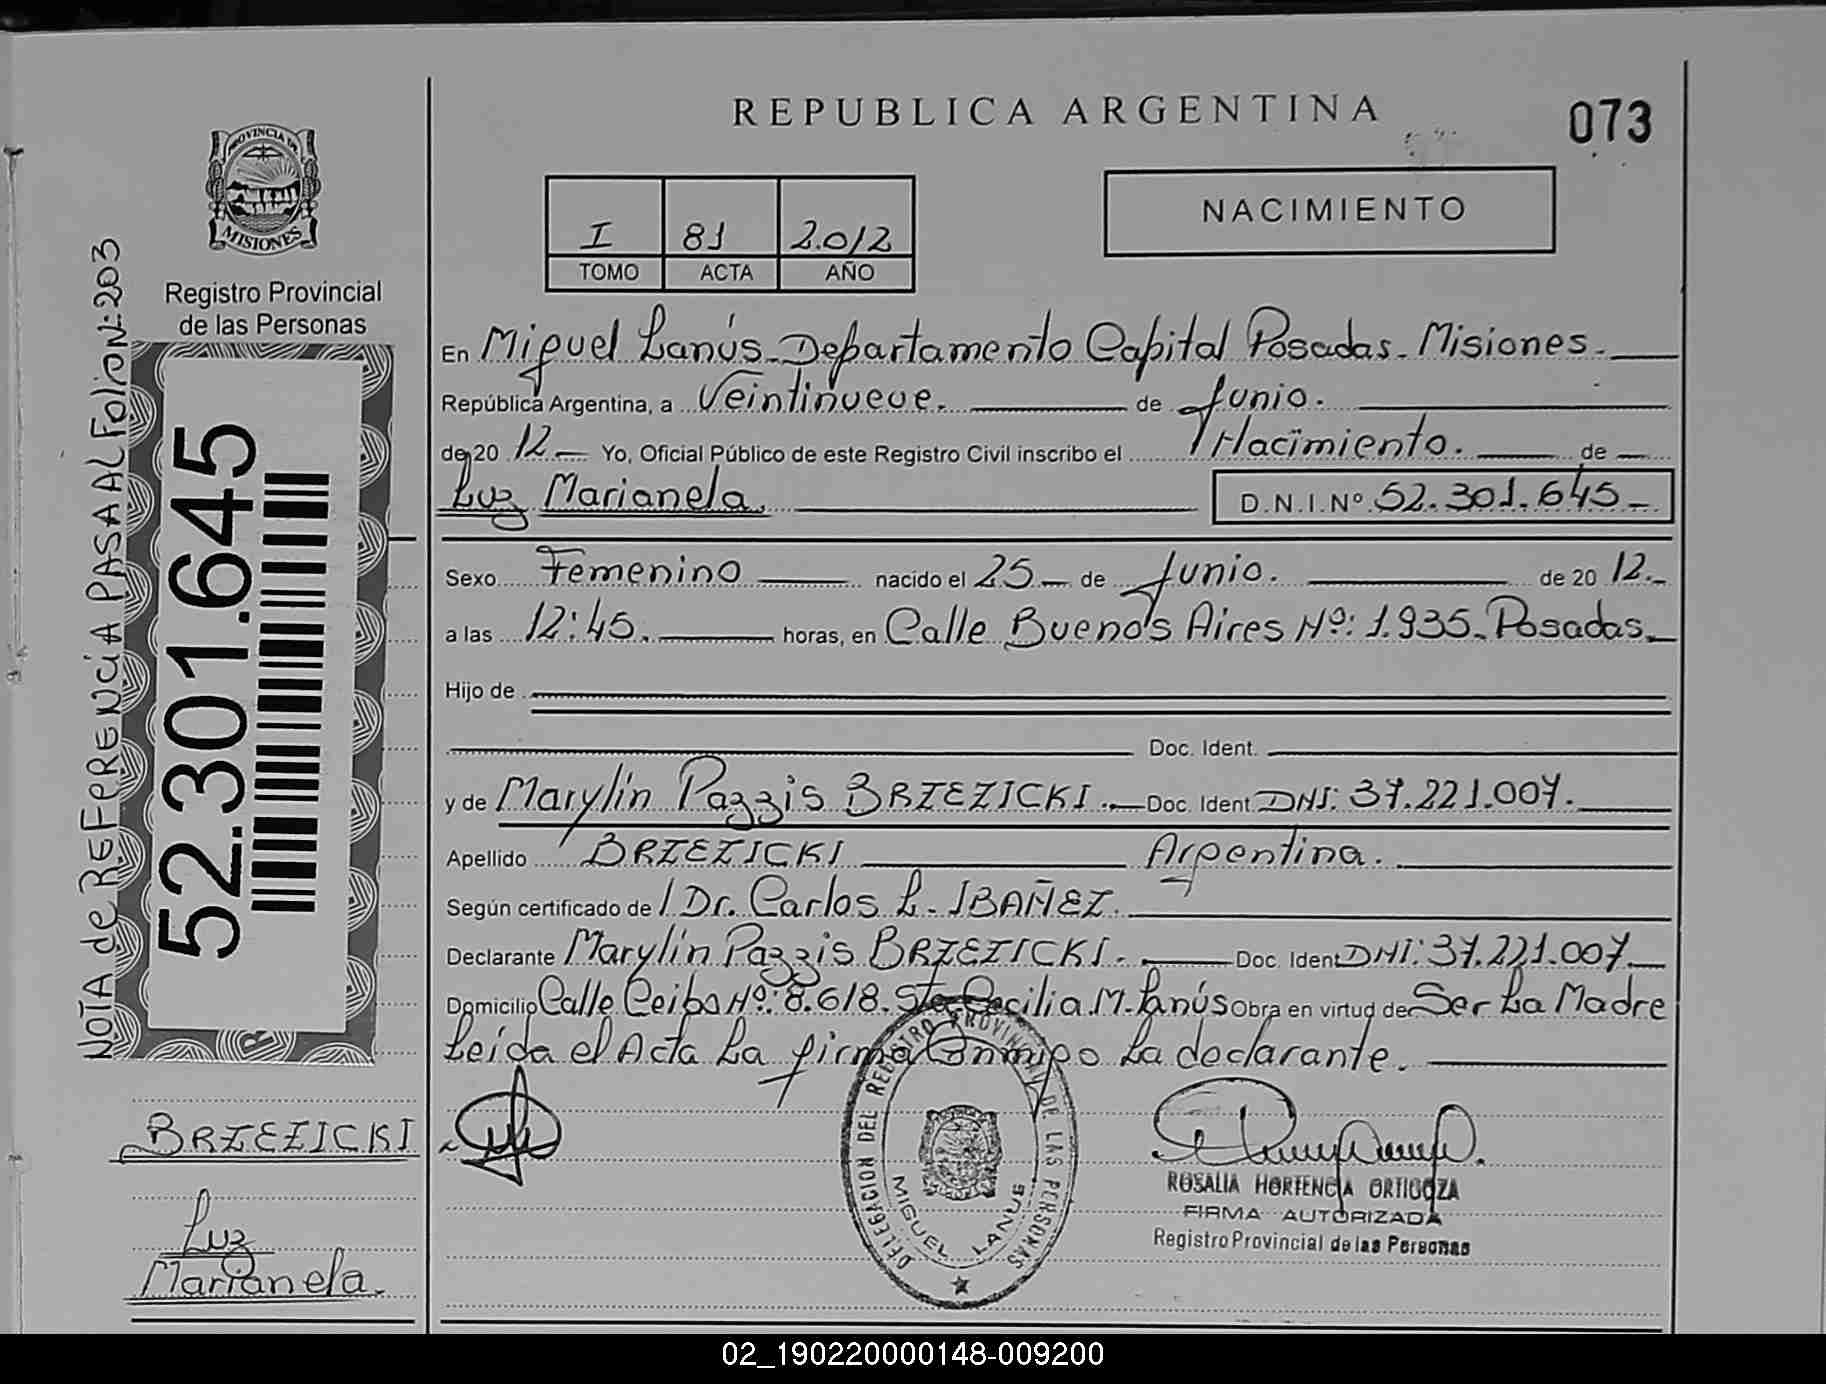 REPUBLICA ARGENTINA
073
PROVINCIA DE
MISIONES
Registro Provincial
de las Personas
NACIMIENTO
I 81 2.012
TOMO ACTA AÑO
En Miguel Lanús - Departamento Capital Posadas - Misiones.
República Argentina, a Veintinueve. de Junio.
de 20 12 Yo, Oficial Público de este Registro Civil inscribo el Nacimiento. de
Luz Marianela. D.N.I. Nº 52.301.645
Sexo Femenino nacido el 25 de Junio. de 20 12.
a las 12:45. horas, en Calle Buenos Aires Nº: 1.935. Posadas.
Hijo de
Doc. Ident.
y de Marylin Pazzis BRZEZICKI. Doc. Ident. DNI: 37.221.007.
Apellido BRZEZICKI Argentina.
Según certificado de Dr. Carlos L. IBAÑEZ.
Declarante Marylin Pazzis BRZEZICKI. Doc. Ident DNI: 37.221.007.
Domicilio Calle Ceibo Nº: 8.618. Sta Cecilia. M. Lanús Obra en virtud de Ser La Madre
Leída el Acta La firma Conmigo La declarante.
NOTA de REFERENCIA PASA AL Folio Nº: 203
52.301.645
BRZEZICKI
Luz
Marianela.
DELEGACION DEL REGISTRO PROVINCIAL DE LAS PERSONAS
MIGUEL LANUS
ROSALIA HORTENCIA ORTIGOZA
FIRMA AUTORIZADA
Registro Provincial de las Personas
02_190220000148-009200